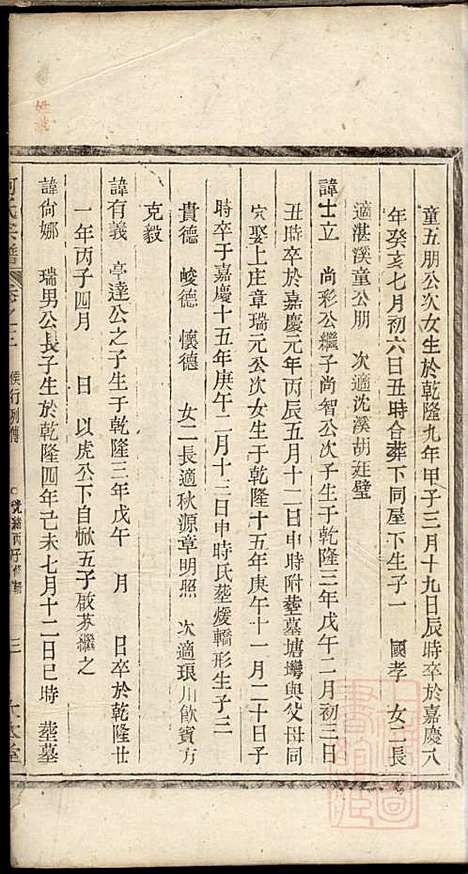 童五朋公次女生於乾隆九年甲子三月十九日辰時卒於嘉慶八
年癸亥七月初六日丑時合葬下同屋下生子一　國孝　女二長
適湛溪童公朋　次適沈溪胡廷璧
諱士立　尚彩公繼子尚智公次子生于乾隆三年戊午二月初三日
丑時卒於嘉慶元年丙辰五月十二日申時附塟墓塘灣與父母同
穴娶上庄章瑞元公次女生于乾隆十五年庚午十一月二十日子
時卒于嘉慶十五年庚午二月十三日申時氏塟煖轎形生子三
貴德　峻德　懷德　女二長適秋源章明照　次適琅川歙賓方
克毅
諱有義　亭達公之子生于乾隆三年戊午　月　日卒於乾隆廿
一年丙子四月　日　以虎公下自㤆五子啟芬繼之
諱尙娜　瑞男公長子生於乾隆四年己未七月十二日巳時　塟墓
何氏宗譜　卷之　行列傳　光緒丙子修　三　大本堂